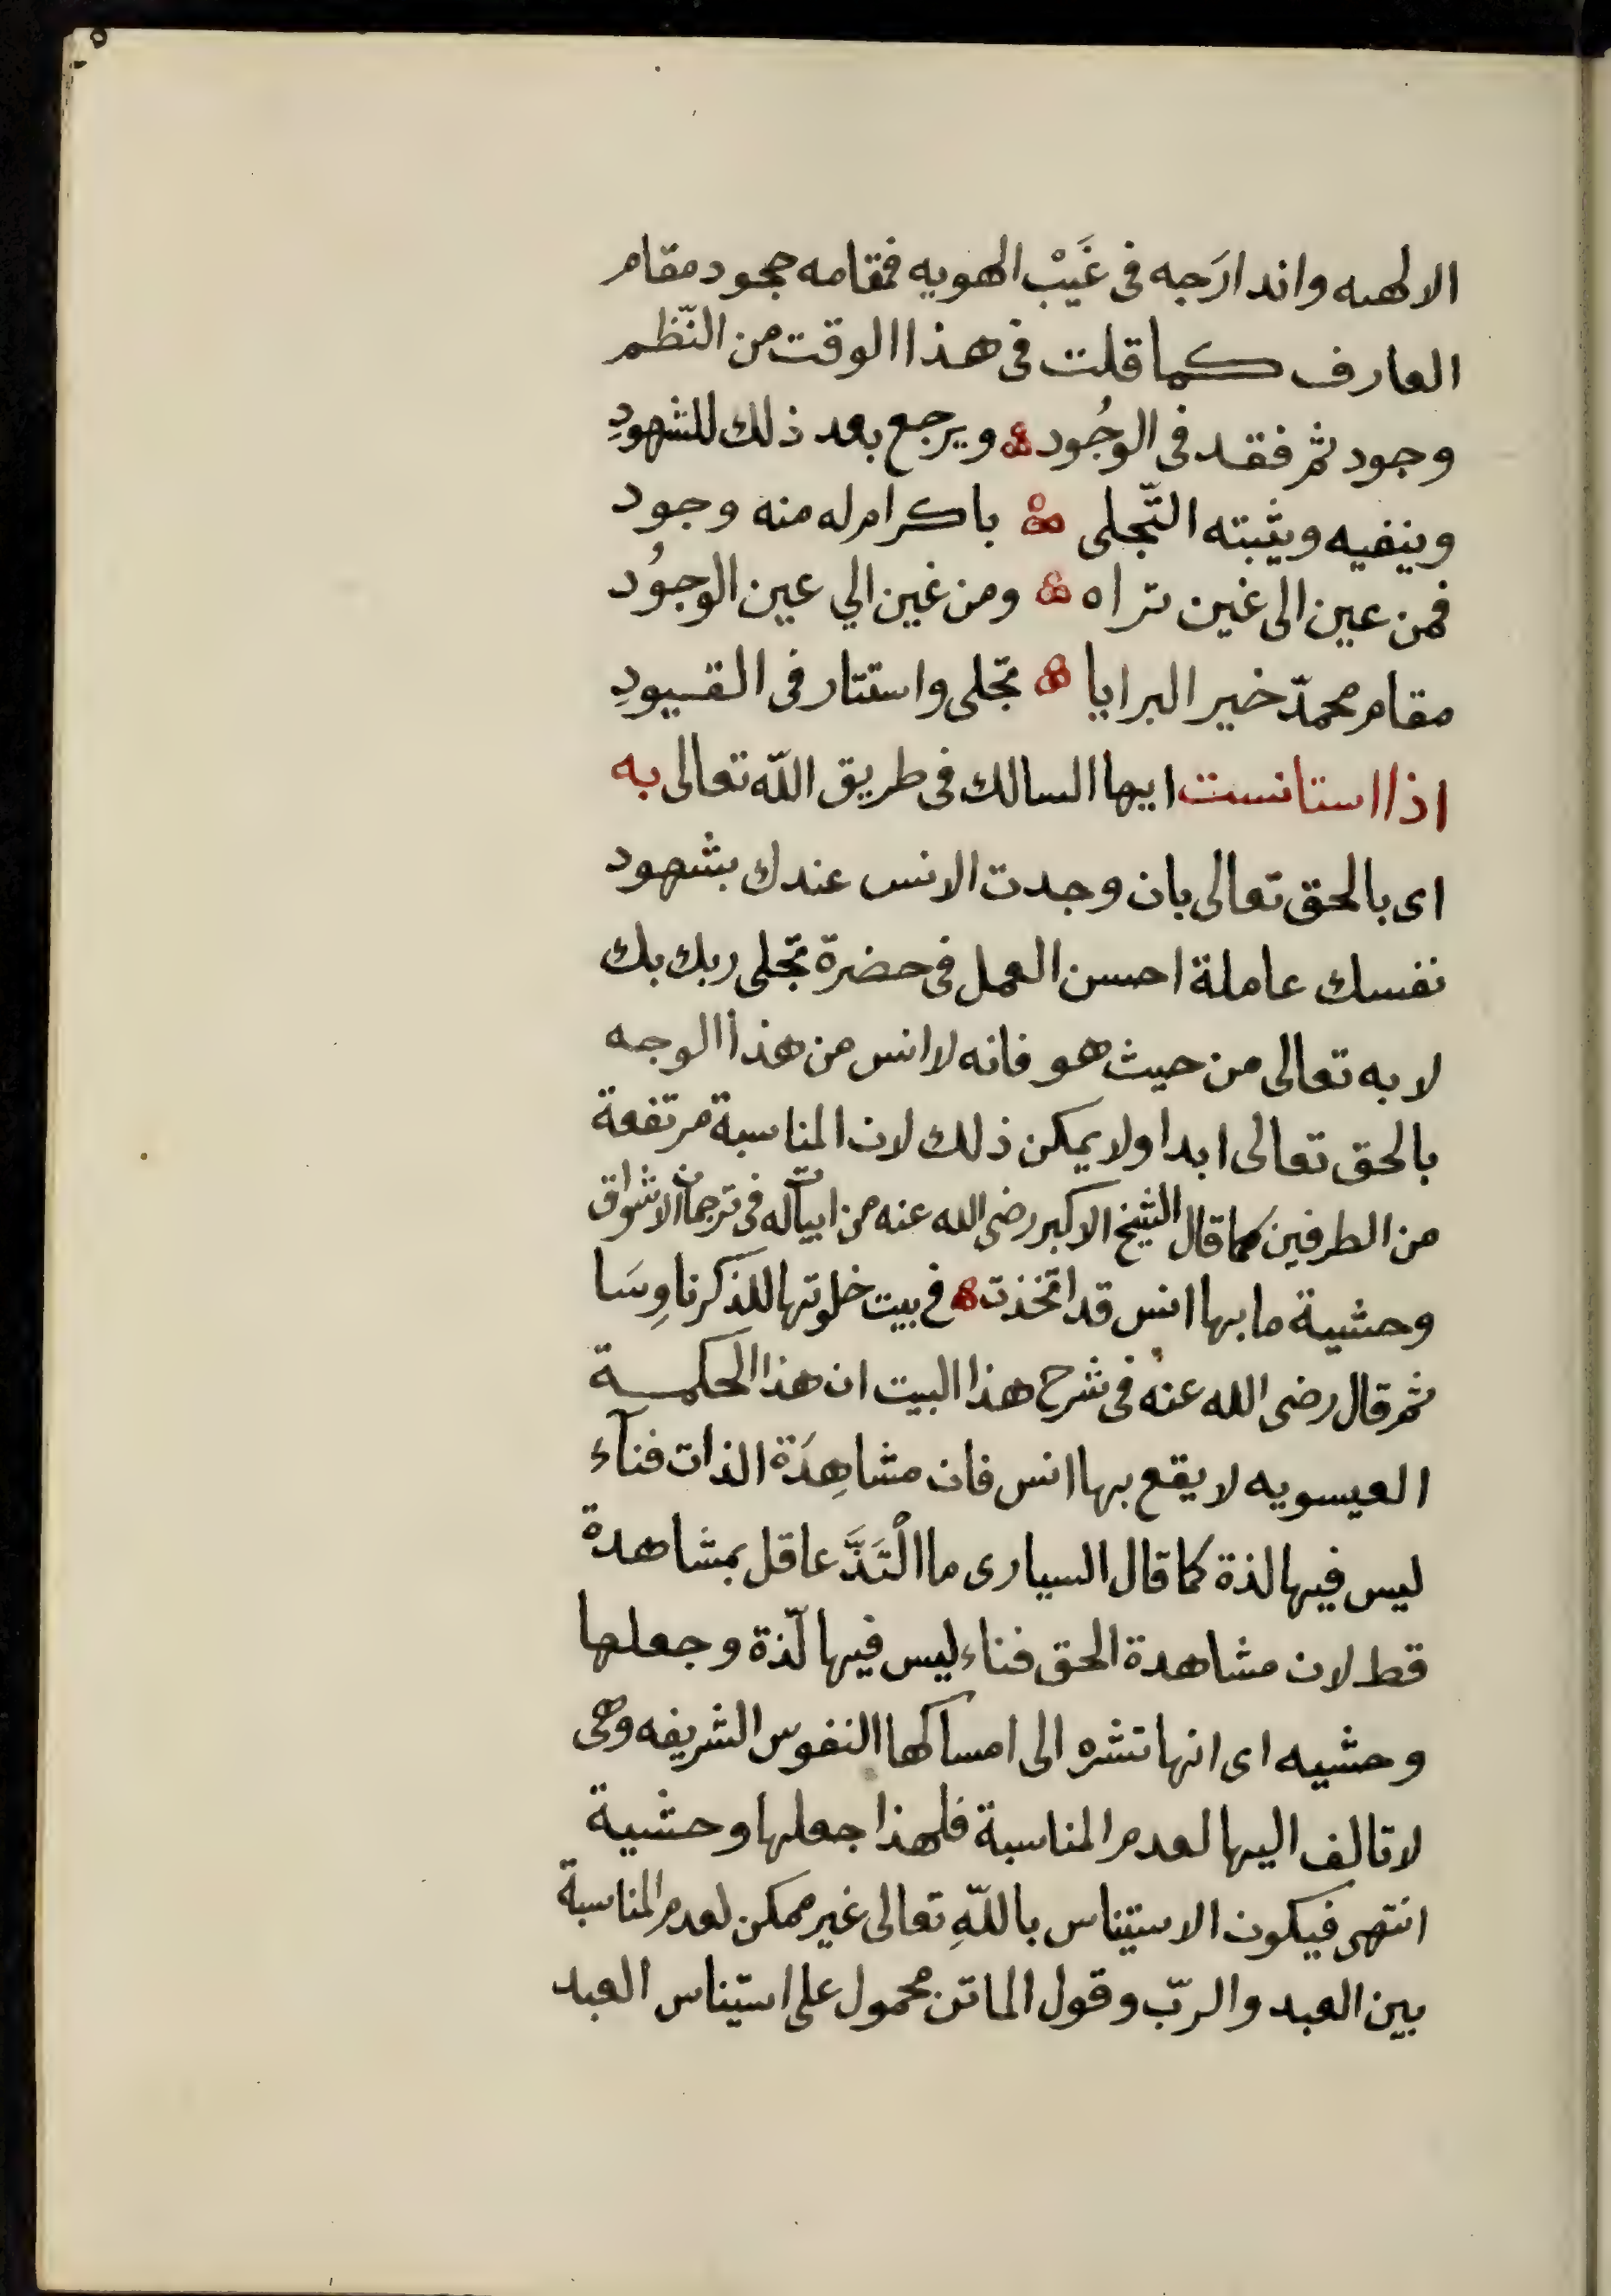 الالهىه واندارَجه فى غَيْب الهويه فمقامه حججود مقام
العارف كما قلت فى هذا الوقت من النّظم
وجود ثم فقد فى الوجُود ويرجع بعد ذلك للشهودِ
وينفيه ويثبته التّجلى باكرام له منه وجود
فمن عين الى غين تراه ومن غين الي عين الوجوُد
مقام محمدّ خير البرايا تجلى واستتار فى القيودِ
اذا استانست ايها السالك فى طريق اللّه تعالى به
اى بالحق تعالى بان وجدت الانس عندك بشهود
نفسك عاملة احسن العمل فى حضرة تجلى ربك بك
لا به تعالى من حيث هو فانه لا انس من هذا الوجه
بالحق تعالى ابدا ولا يمكن ذلك لان المناسبة مرتفعة
من الطرفين كما قال الشيخ الاكبر رضى الله عنه من ابيات له فى ترجمان الاشواق
وحشية ما بها انس قد اتخذت في بيت خلوتها للذكر ناوِسَا
ثم قال رضى الله عنه فى شرح هذا البيت ان هذا الحكمة
العيسويه لا يقع بها انس فان مشاهِدَة الذات فنآء
ليس فيها لذة كما قال السيارى ما الْتَذَّ عاقل بمشاهدة
قط لان مشاهدة الحق فناء ليس فيها لّذة وجعلها
وحشيه اى انها تشره الى امساكها النفوس الشريفه وهى
لا تالف اليها لعدم المناسبة فلهذا جعلها وحشية
انتهى فيكون الاستيناس باللّهِ تعالى غير ممكن لعدم المناسبة
بين العبد والربّ وقول الماتن محمول على استيناس العبد